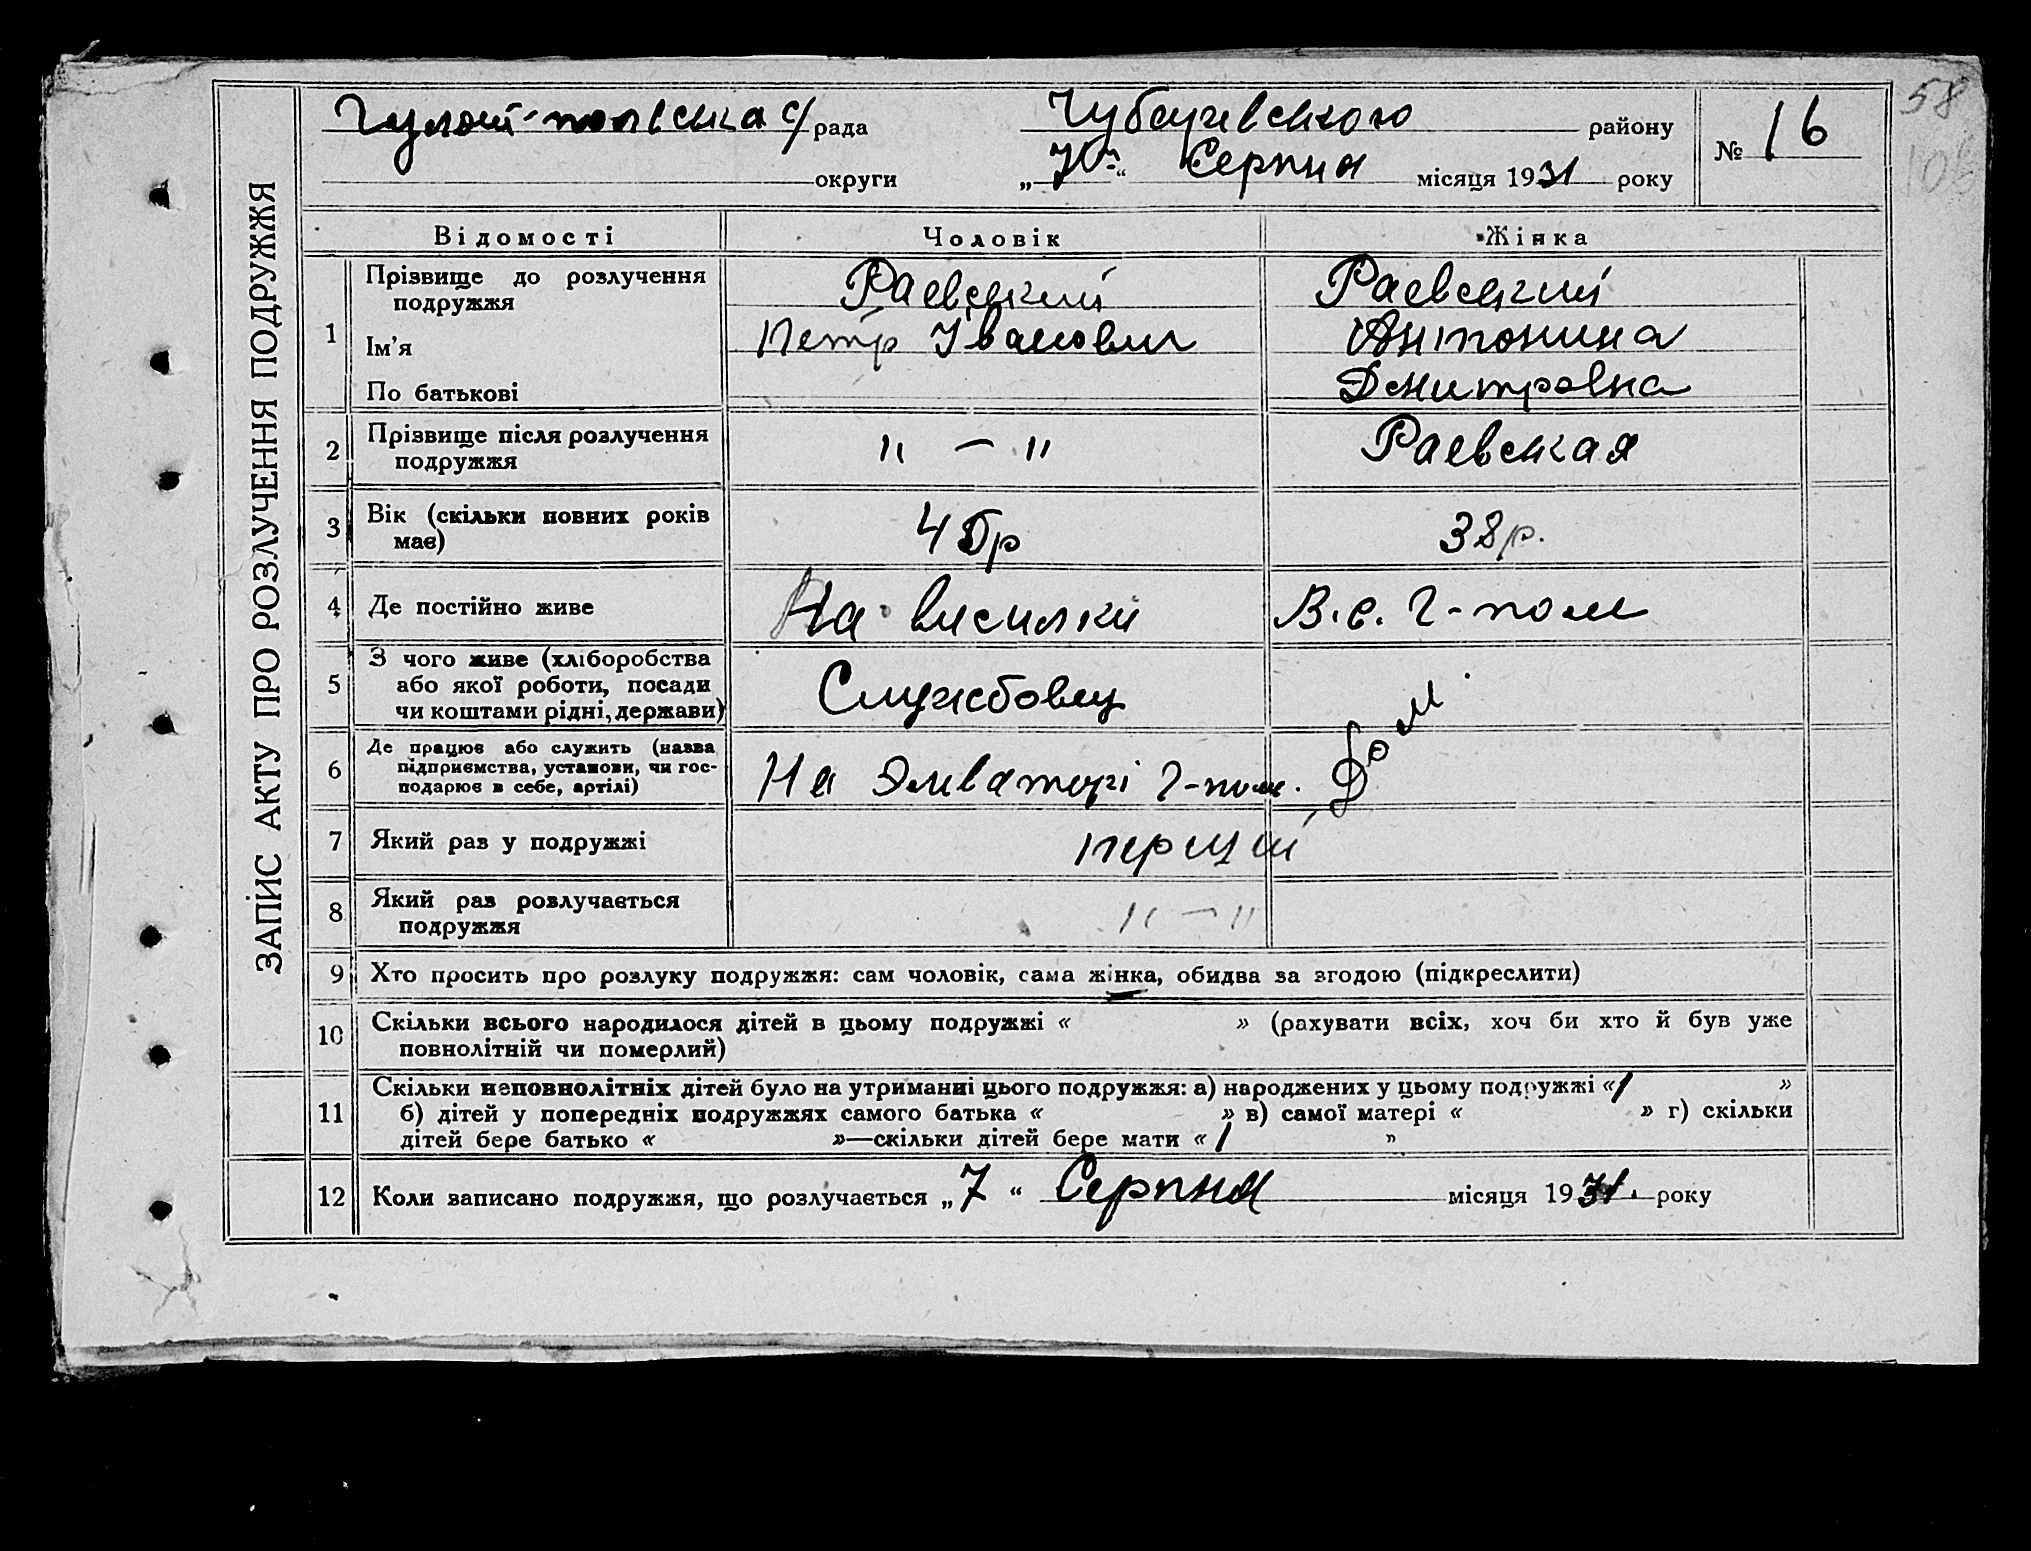 58
рада
району
№ 16
округи „ “ Серпня місяця 1931 року
ЗАПИС АКТУ ПРО РОЗЛУЧЕННЯ ПОДРУЖЖЯ
Відомості Чоловік Жінка
1 Прізвище до розлучення подружжя Раевский Раевский
Ім’я Петр Іванович Антонина
По батькові Дмитровна
2 Прізвище після розлучення подружжя " — " Раевская
3 Вік (скільки повних років має) 45р 38р.
4 Де постійно живе На висилки В.с. Г-поле
5 З чого живе (хліборобства або якої роботи, посади чи коштами рідні, держави) Службовец
6 Де працює або служить (назва підприємства, установи, чи господарює в себе, артілі) На Элеваторі Г-поле.
7 Який раз у подружжі перший
8 Який раз розлучається подружжя " — "
9 Хто просить про розлуку подружжя: сам чоловік, сама жінка, обидва за згодою (підкреслити)
10 Скільки всього народилося дітей в цьому подружжі « » (рахувати всіх, хоч би хто й був уже
повнолітній чи померлий)
11 Скільки неповнолітніх дітей було на утриманні цього подружжя: а) народжених у цьому подружжі «1 »
б) дітей у попередніх подружжях самого батька « » в) самої матері « » г) скільки
дітей бере батько « »—скільки дітей бере мати «1 »
12 Коли записано подружжя, що розлучається „7“ Серпня місяця 1931. року